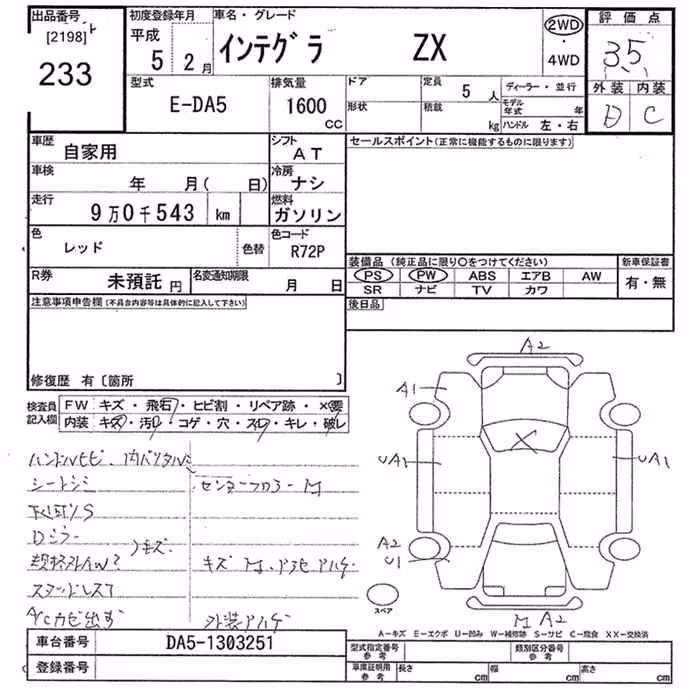 出品番号
[2198]ト
233
初度登録年月
平成
5 2月
車名・グレード
インテグラ ZX
2WD
・
4WD
評価点
3.5
外装 内装
D C
型式
E-DA5
排気量
1600
CC
ドア
形状
定員
5人
積載
kg
ディーラー・並行
モデル年式 年
ハンドル 左・右
車歴
自家用
シフト
AT
車検
年 月( 日)
冷房
ナシ
走行
9万0千543 km
燃料
ガソリン
色
レッド
色替
色コード
R72P
R券
未預託 円
名変通知期限
月 日
セールスポイント(正常に機能するものに限ります)
装備品(純正品に限り○をつけてください)
PS PW ABS エアB AW
SR ナビ TV カワ
新車保証書
有・無
後日品
注意事項申告欄(不具合内容等は具体的に記入して下さい)
修復歴 有〔箇所 〕
検査員
記入欄
FW キズ・飛石・ヒビ割・リペア跡・×要
内装 キズ・汚レ・コゲ・穴・スレ・キレ・破レ
ハンドルヒビ、内バリタルミ
シートシミ
センターフロアーM
下廻りS
Dミラー
キズ
キズM、アライアハゲ
スタッドレス7
A/Cカビ出ず
外装アハゲ
A2
A1
UA1
X
UA1
A2
U1
スペア
M A2
A-キズ E-エクボ U-凹み W-補修跡 S-サビ C-腐食 XX-交換済
車台番号
DA5-1303251
登録番号
型式指定番号
参考
類別区分番号
参考
車庫証明用
参考
長さ cm
幅 cm
高さ cm